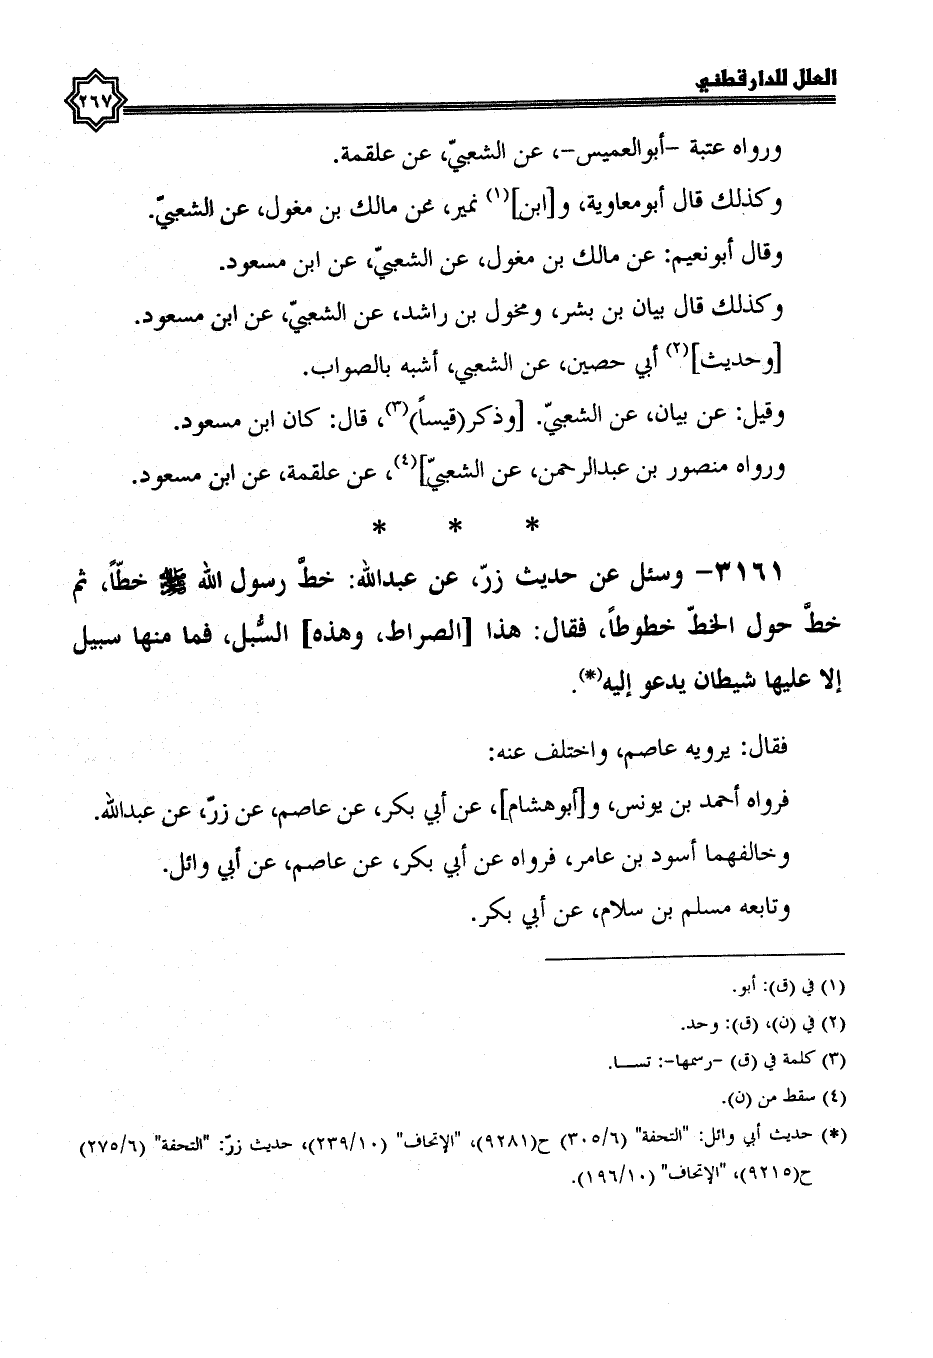 العلل للدارقطني
٢٦٧
ورواه عتبة -أبوالعميس-، عن الشعبيّ، عن علقمة.
وكذلك قال أبومعاوية، و[ابن](١) نمير، عن مالك بن مغول، عن الشعبيّ.
وقال أبونعيم: عن مالك بن مغول، عن الشعبيّ، عن ابن مسعود.
وكذلك قال بيان بن بشر، ومخول بن راشد، عن الشعبيّ، عن ابن مسعود.
[وحديث](٢) أبي حصين، عن الشعبي، أشبه بالصواب.
وقيل: عن بيان، عن الشعبيّ. [وذكر(قيساً)(٣)، قال: كان ابن مسعود.
ورواه منصور بن عبدالرحمن، عن الشعبيّ](٤)، عن علقمة، عن ابن مسعود.
* * *
٣١٦١- وسئل عن حديث زرّ، عن عبدالله: خطَّ رسول الله ﷺ خطّاً، ثم
خطَّ حول الخطّ خطوطاً، فقال: هذا [الصراط، وهذه] السُّبل، فما منها سبيل
إلا عليها شيطان يدعو إليه(*).
فقال: يرويه عاصم، واختلف عنه:
فرواه أحمد بن يونس، و[أبوهشام]، عن أبي بكر، عن عاصم، عن زرّ، عن عبدالله.
وخالفهما أسود بن عامر، فرواه عن أبي بكر، عن عاصم، عن أبي وائل.
وتابعه مسلم بن سلام، عن أبي بكر.
(١) في (ق): أبو.
(٢) في (ن)، (ق): وحد.
(٣) كلمة في (ق) -رسمها-: تسـا.
(٤) سقط من (ن).
(*) حديث أبي وائل: "التحفة" (٣٠٥/٦) ح(٩٢٨١)، "الإتحاف" (٢٣٩/١٠)، حديث زرّ: "التحفة" (٢٧٥/٦)
ح(٩٢١٥)، "الإتحاف" (١٩٦/١٠).